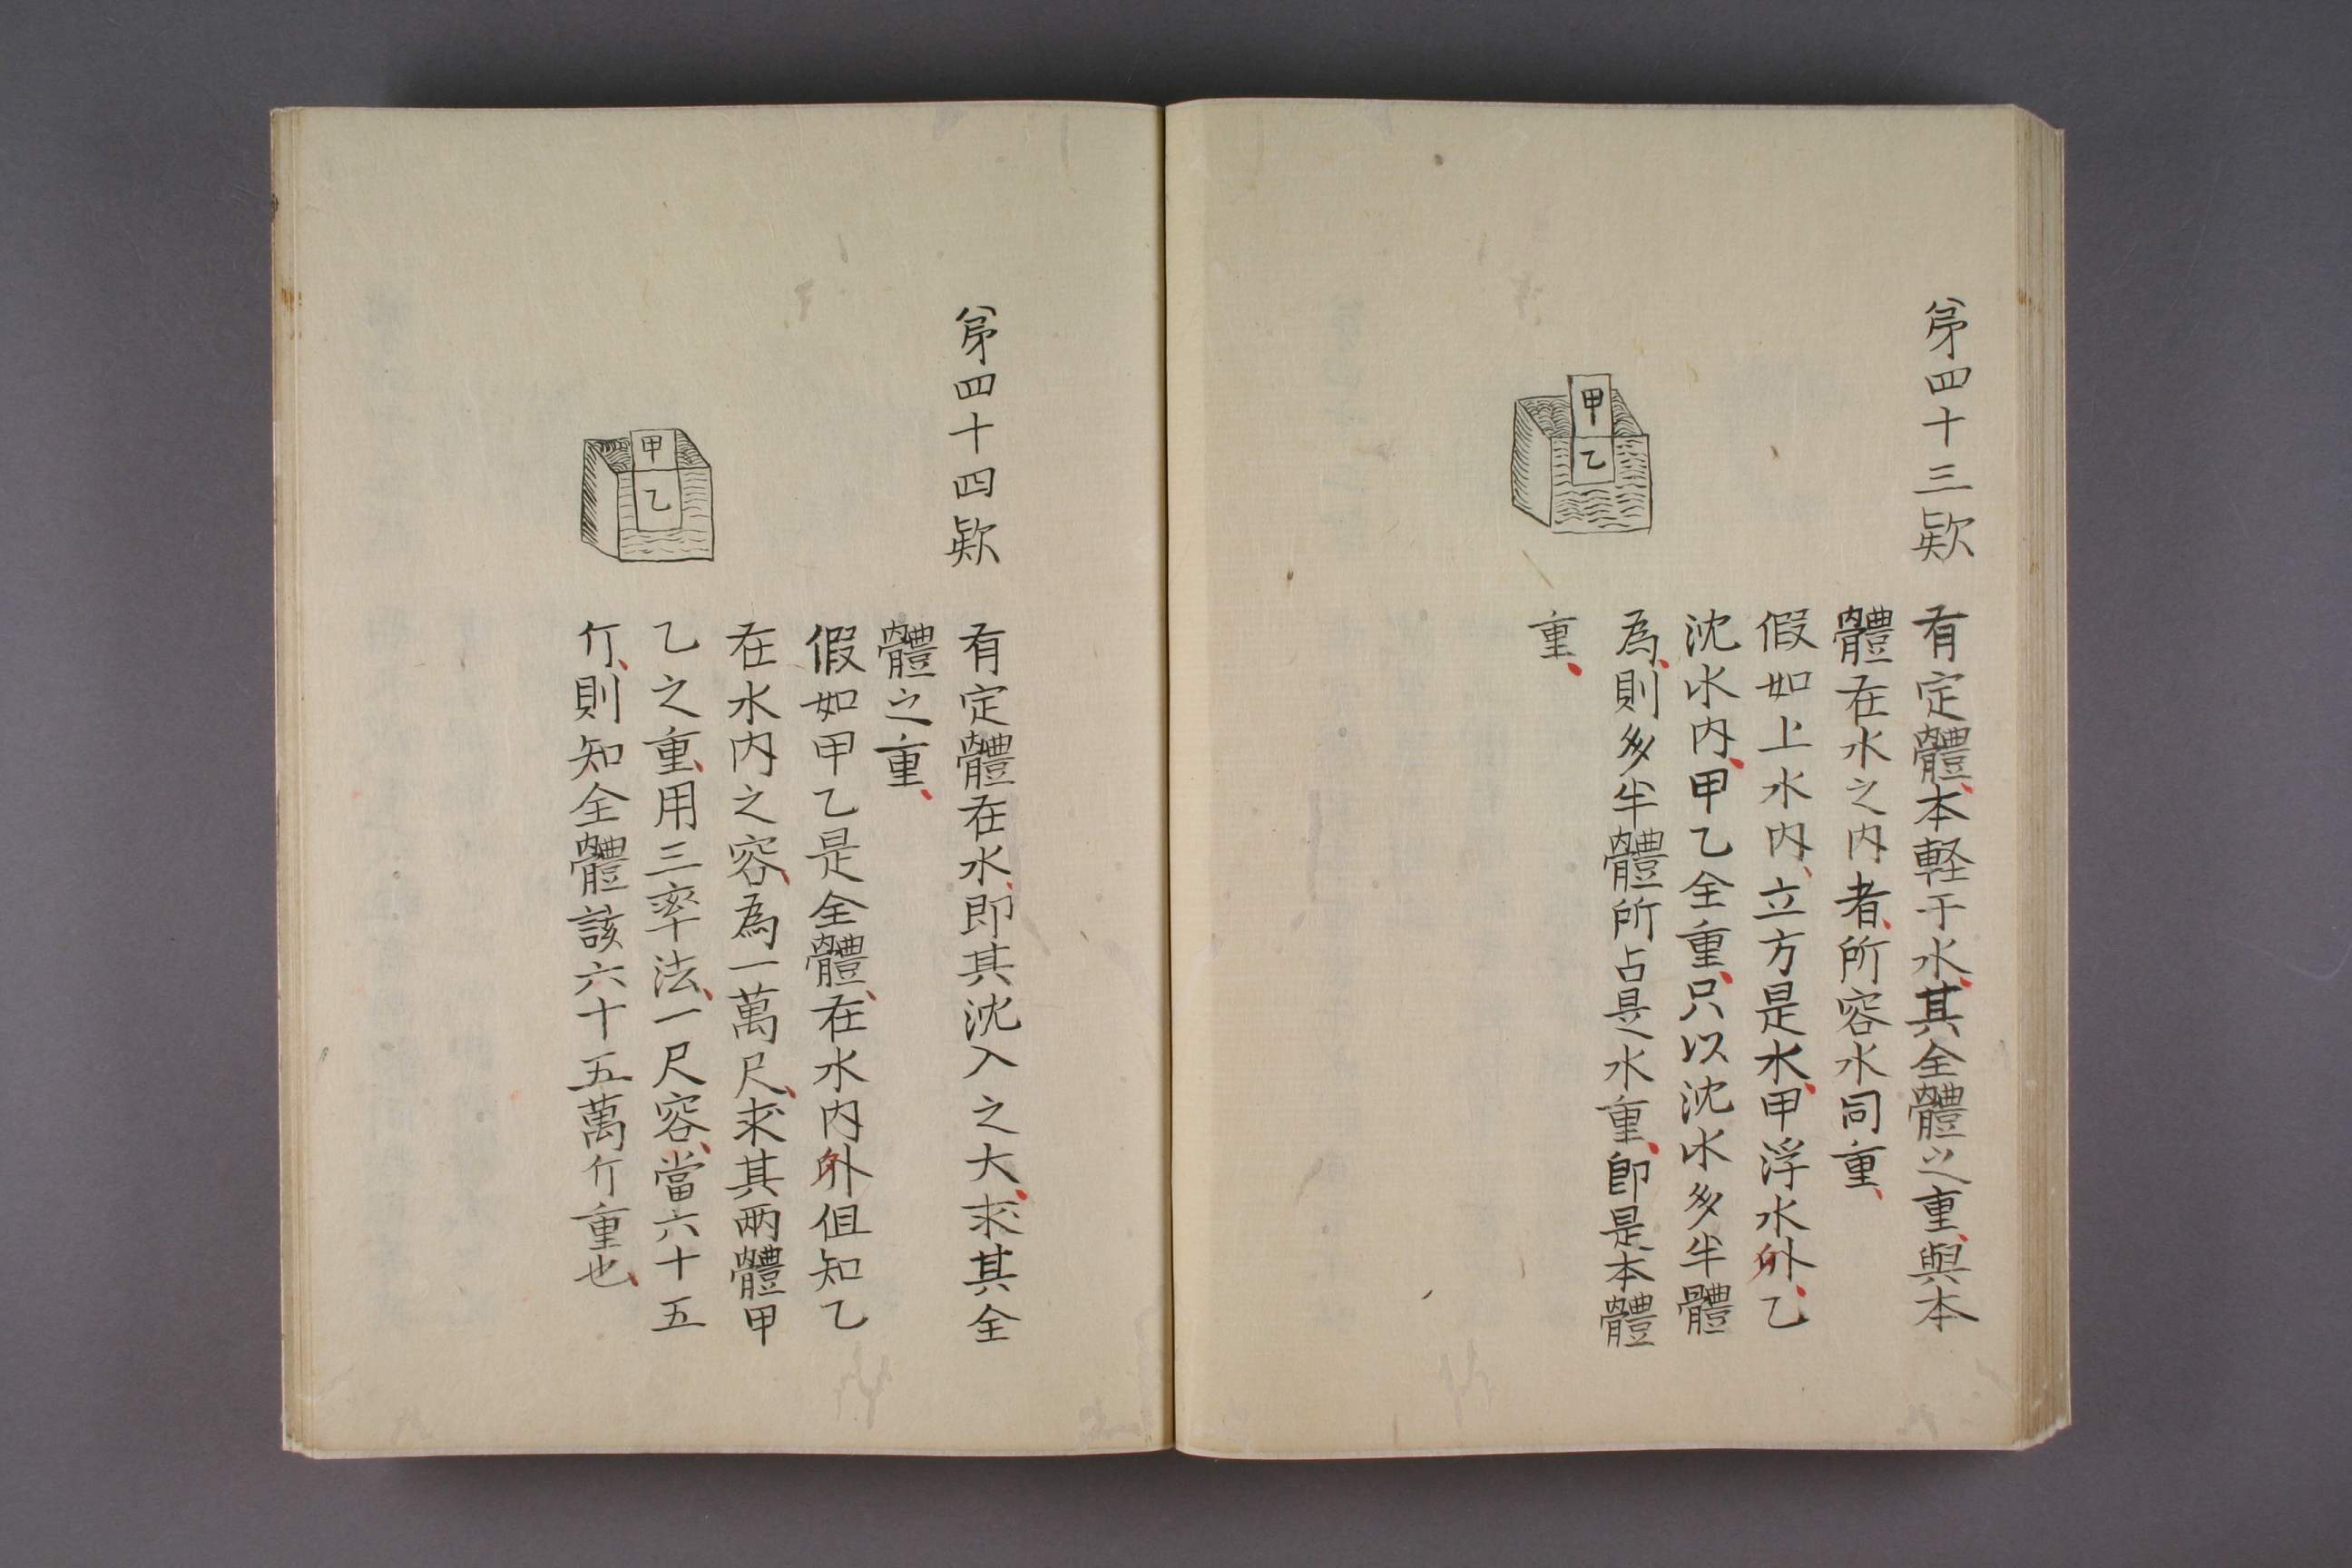 第四十三款
有定體、本軽于水、其全體之重、與本
體在水之内者、所容水同重、
假如上水内、立方是水、甲浮水外、乙
沈水内、甲乙全重、只以沈水多半體
為、則多半體所占是水重、即是本體
重、
甲
乙
第四十四款
有定體在水、即其沈入之大、求其全
體之重、
假如甲乙是全體、在水内外但知乙
在水内之容、為一萬尺、求其兩體甲
乙之重、用三率法、一尺容、當六十五
斤、則知全體該六十五萬斤重也、
甲
乙